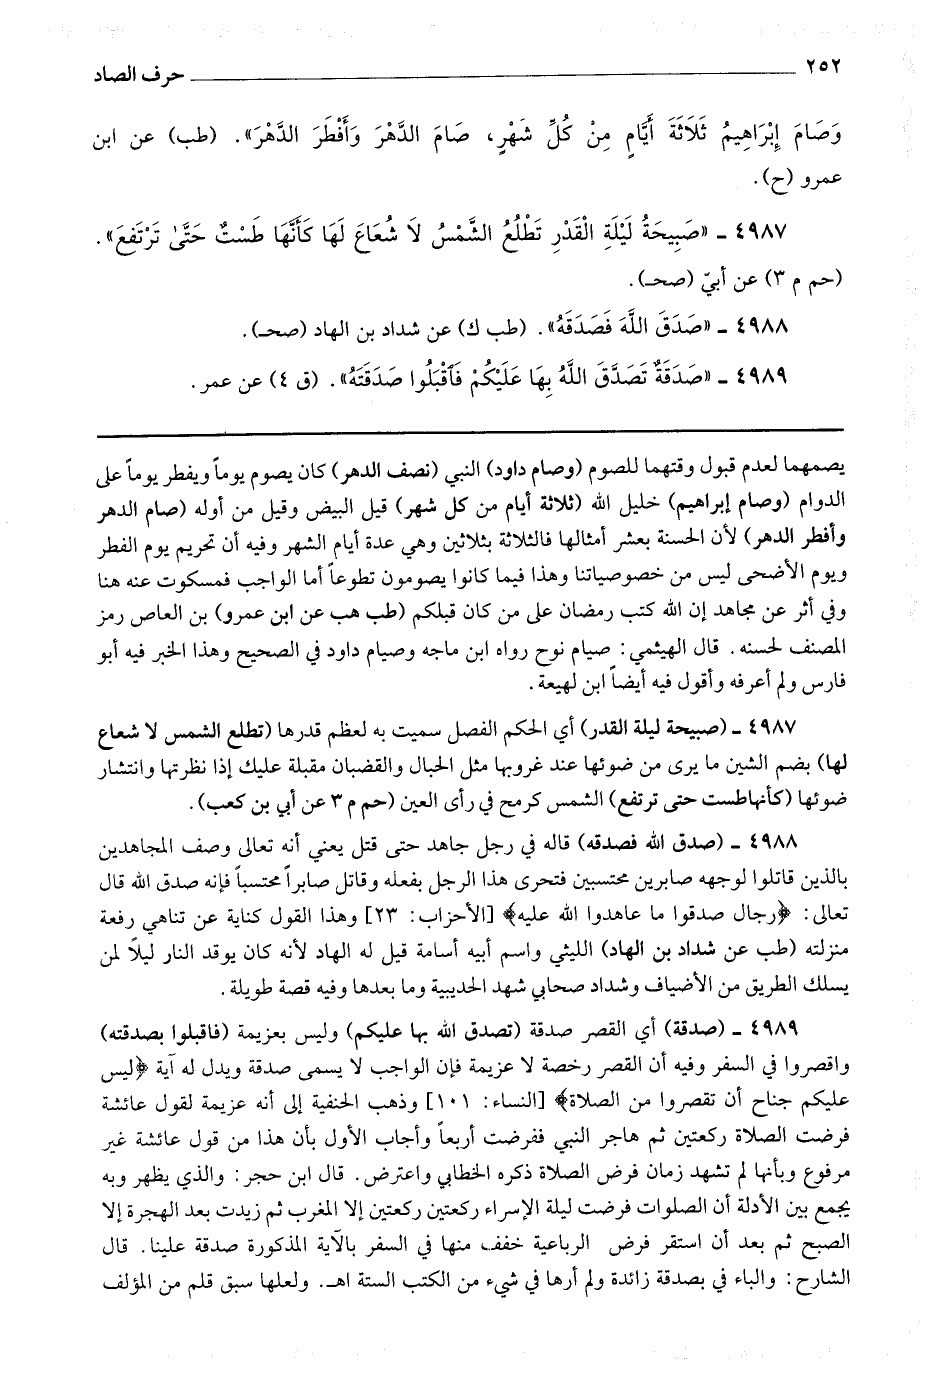 ٢٥٢ حرف الصاد
وَصَامَ إِبْرَاهِيمُ ثَلَاثَةَ أَيَّامٍ مِنْ كُلِّ شَهْرٍ، صَامَ الدَّهْرَ وَأَفْطَرَ الدَّهْرَ». (طب) عن ابن
عمرو (ح).
٤٩٨٧ ـ «صَبِيحَةُ لَيْلَةِ الْقَدْرِ تَطْلُعُ الشَّمْسُ لاَ شُعَاعَ لَهَا كَأَنَّهَا طَسْتٌ حَتَّىٰ تَرْتَفِعَ».
(حم م ٣) عن أبيّ (صحـ).
٤٩٨٨ ـ «صَدَقَ اللَّهَ فَصَدَقَهُ». (طب ك) عن شداد بن الهاد (صحـ).
٤٩٨٩ ـ «صَدَقَةٌ تَصَدَّقَ اللَّهُ بِهَا عَلَيْكُمْ فَآقْبَلُوا صَدَقَتَهُ». (ق ٤) عن عمر.
يصمهما لعدم قبول وقتهما للصوم (وصام داود) النبي (نصف الدهر) كان يصوم يوماً ويفطر يوماً على
الدوام (وصام إبراهيم) خليل الله (ثلاثة أيام من كل شهر) قيل البيض وقيل من أوله (صام الدهر
وأفطر الدهر) لأن الحسنة بعشر أمثالها فالثلاثة بثلاثين وهي عدة أيام الشهر وفيه أن تحريم يوم الفطر
ويوم الأضحى ليس من خصوصياتنا وهذا فيما كانوا يصومون تطوعاً أما الواجب فمسكوت عنه هنا
وفي أثر عن مجاهد إن الله كتب رمضان على من كان قبلكم (طب هب عن ابن عمرو) بن العاص رمز
المصنف لحسنه. قال الهيثمي: صيام نوح رواه ابن ماجه وصيام داود في الصحيح وهذا الخبر فيه أبو
فارس ولم أعرفه وأقول فيه أيضاً ابن لهيعة.
٤٩٨٧ ـ (صبيحة ليلة القدر) أي الحكم الفصل سميت به لعظم قدرها (تطلع الشمس لا شعاع
لها) بضم الشين ما يرى من ضوئها عند غروبها مثل الحبال والقضبان مقبلة عليك إذا نظرتها وانتشار
ضوئها (كأنهاطست حتى ترتفع) الشمس كرمح في رأى العين (حم م ٣ عن أبي بن كعب).
٤٩٨٨ ـ (صدق الله فصدقه) قاله في رجل جاهد حتى قتل يعني أنه تعالى وصف المجاهدين
بالذين قاتلوا لوجهه صابرين محتسبين فتحرى هذا الرجل بفعله وقاتل صابراً محتسباً فإنه صدق الله قال
تعالى: ﴿رجال صدقوا ما عاهدوا الله عليه﴾ [الأحزاب: ٢٣] وهذا القول كناية عن تناهي رفعة
منزلته (طب عن شداد بن الهاد) الليثي واسم أبيه أسامة قيل له الهاد لأنه كان يوقد النار ليلًا لمن
يسلك الطريق من الأضياف وشداد صحابي شهد الحديبية وما بعدها وفيه قصة طويلة.
٤٩٨٩ ـ (صدقة) أي القصر صدقة (تصدق الله بها عليكم) وليس بعزيمة (فاقبلوا بصدقته)
واقصروا في السفر وفيه أن القصر رخصة لا عزيمة فإن الواجب لا يسمى صدقة ويدل له آية ﴿ليس
عليكم جناح أن تقصروا من الصلاة﴾ [النساء: ١٠١] وذهب الحنفية إلى أنه عزيمة لقول عائشة
فرضت الصلاة ركعتين ثم هاجر النبي ففرضت أربعاً وأجاب الأول بأن هذا من قول عائشة غير
مرفوع وبأنها لم تشهد زمان فرض الصلاة ذكره الخطابي واعترض. قال ابن حجر: والذي يظهر وبه
يجمع بين الأدلة أن الصلوات فرضت ليلة الإسراء ركعتين ركعتين إلا المغرب ثم زيدت بعد الهجرة إلا
الصبح ثم بعد أن استقر فرض الرباعية خفف منها في السفر بالآية المذكورة صدقة علينا. قال
الشارح: والباء في بصدقة زائدة ولم أرها في شيء من الكتب الستة اهـ. ولعلها سبق قلم من المؤلف